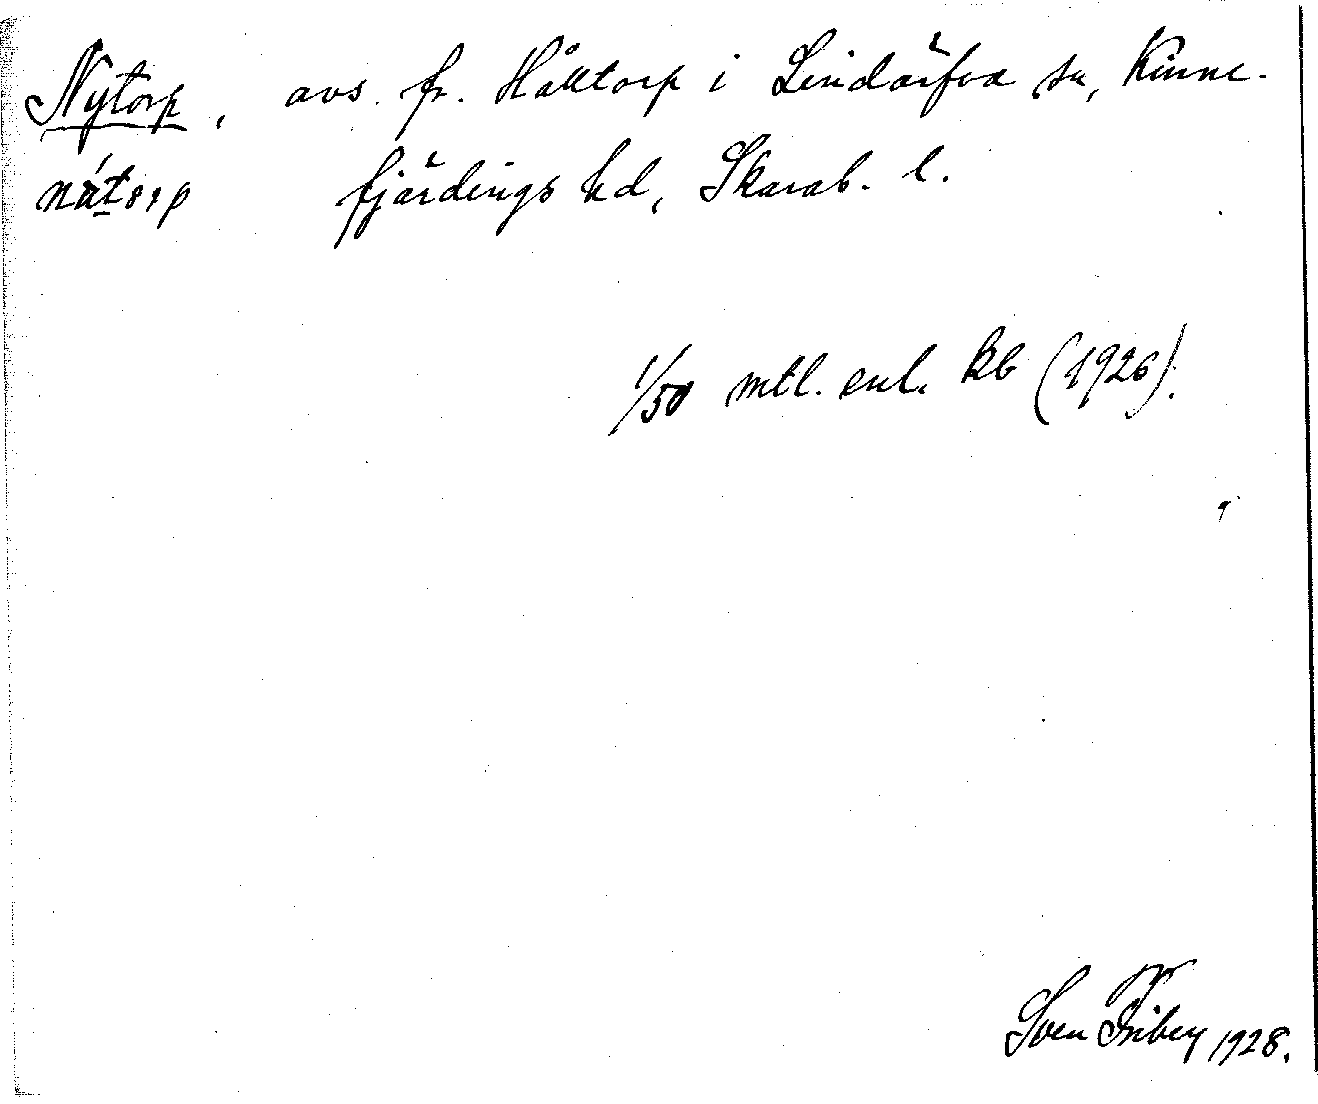 Nytorp, avs. fr. Hålltorp i Lindärfva sn, Kinne-
nátorp fjärdings hd, Skarab. l.
1/50 mtl. enl. kb (1926).
Sven Friberg 1928.